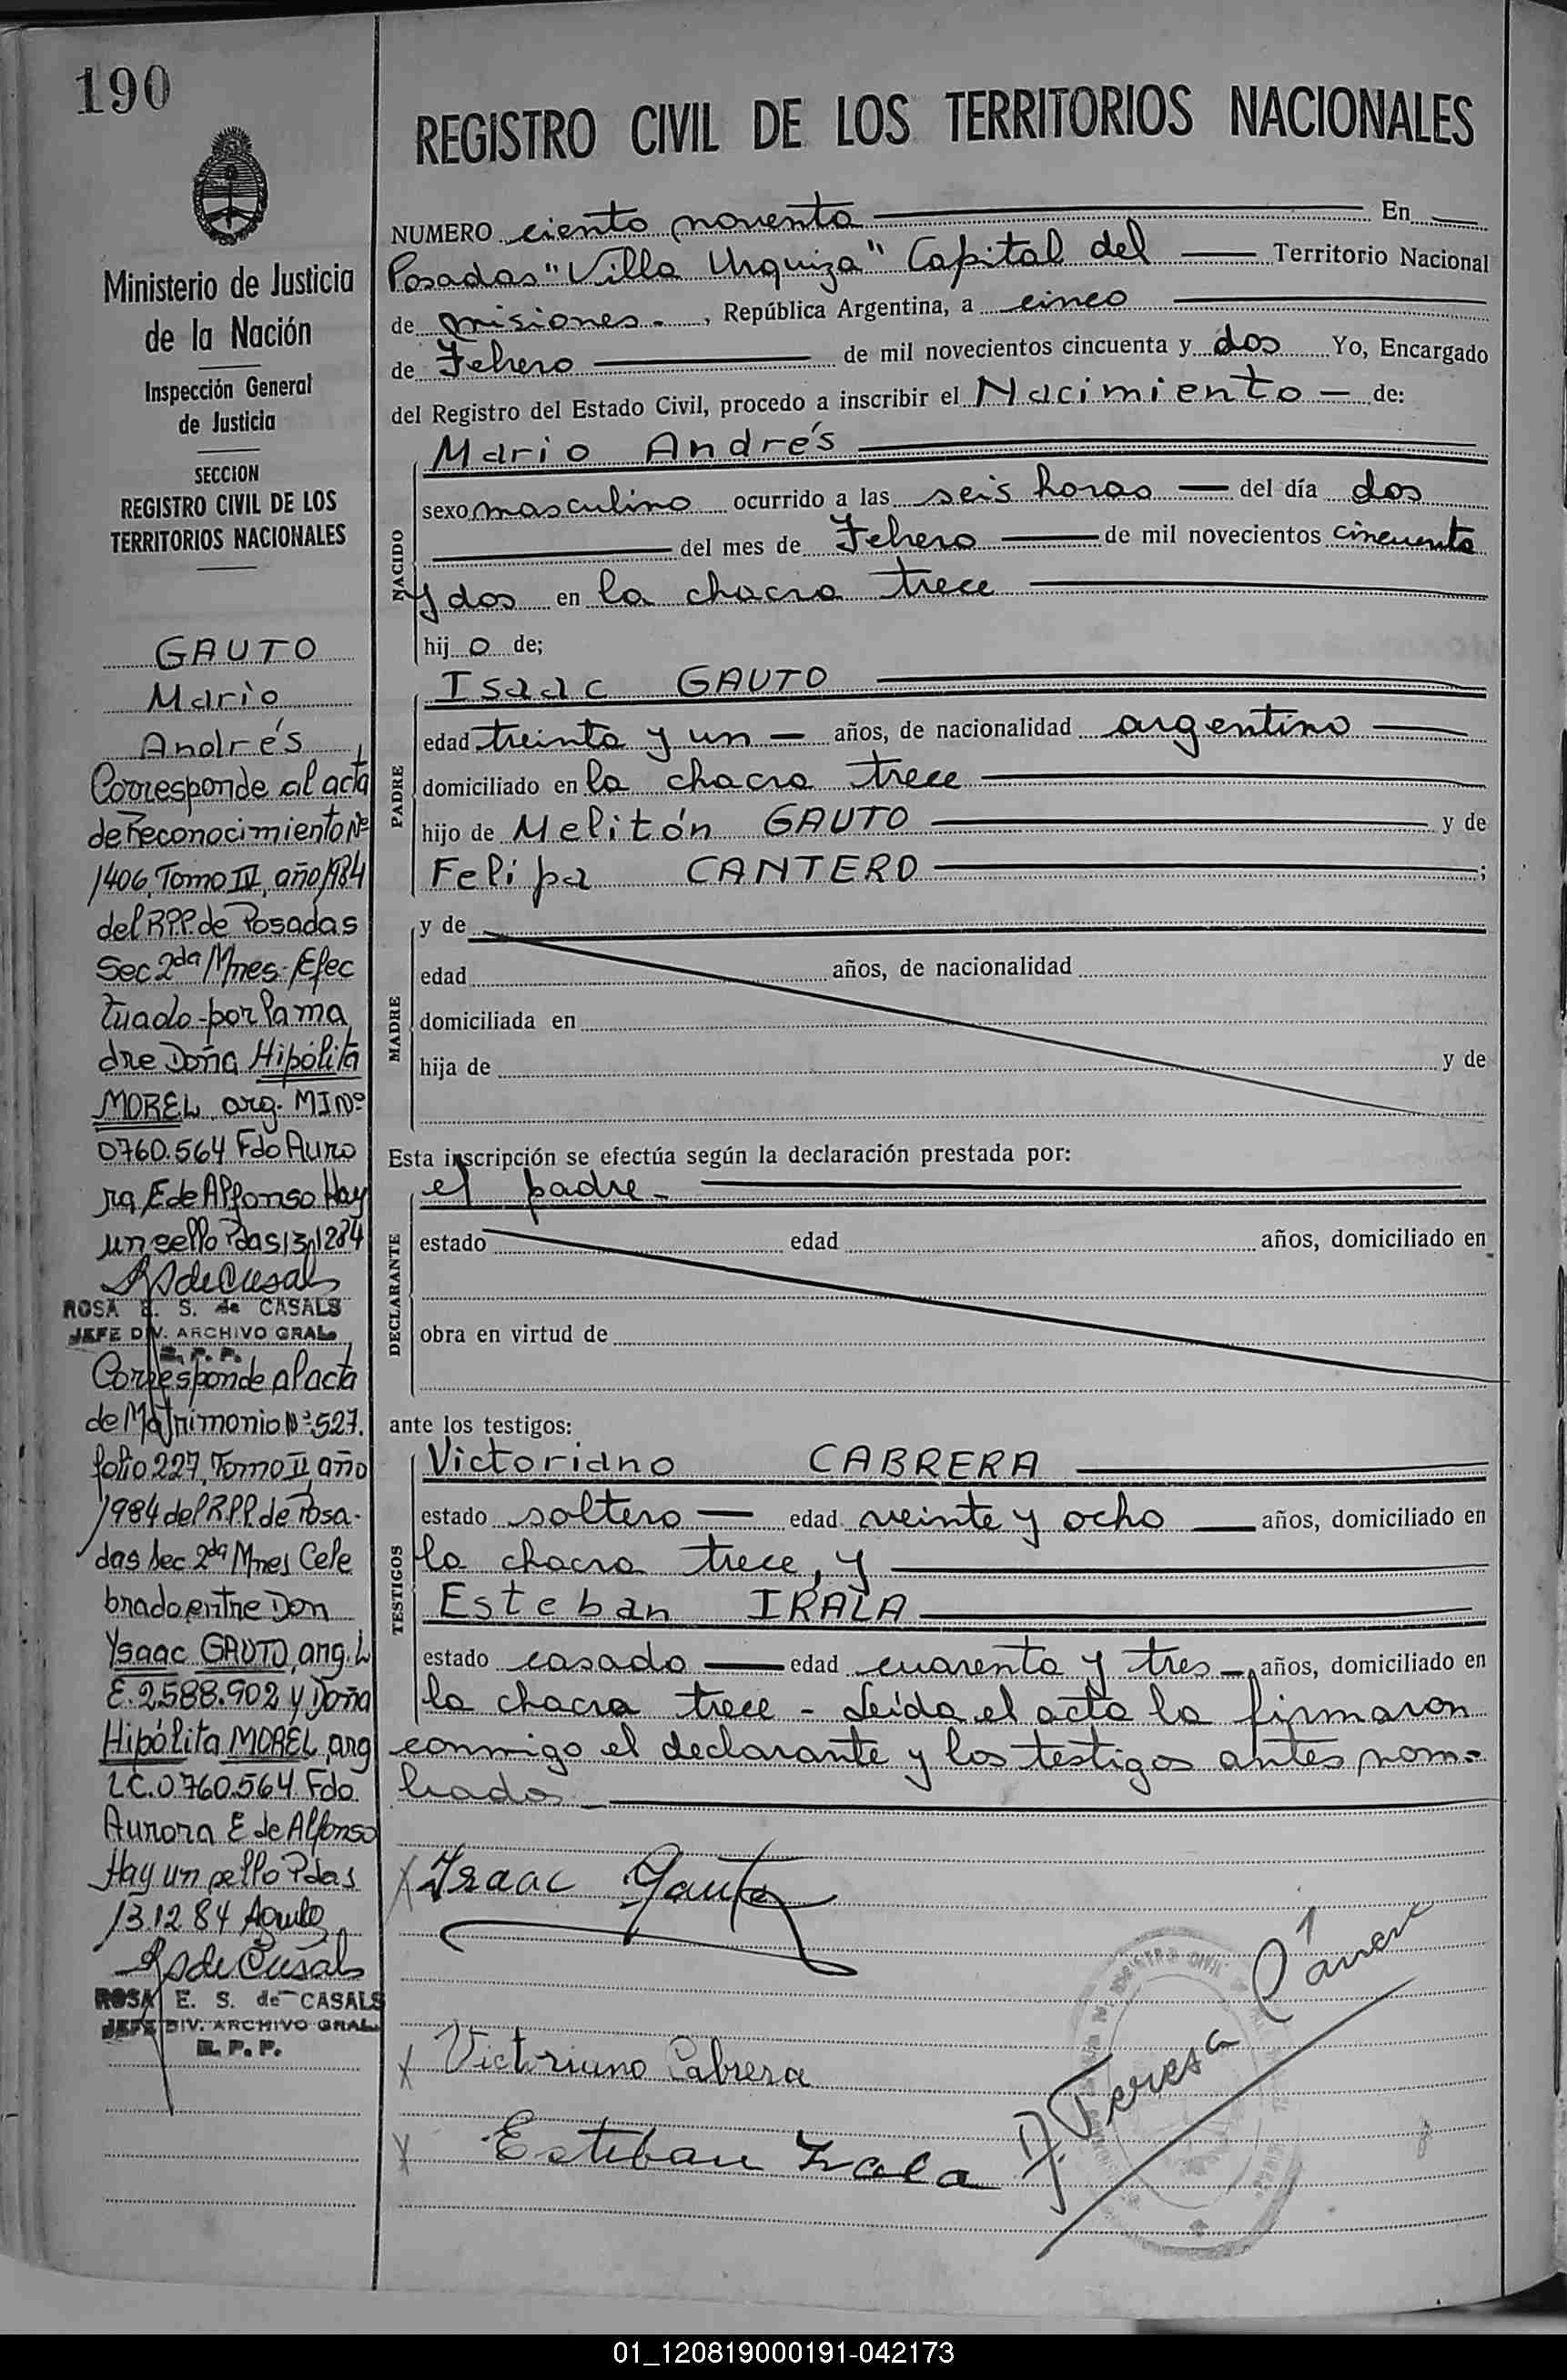 190
Ministerio de Justicia
de la Nación
Inspección General
de Justicia
SECCION
REGISTRO CIVIL DE LOS
TERRITORIOS NACIONALES
GAUTO
Mario
Andrés
Corresponde al acta
de reconocimiento Nº
1406, Tomo IV, año 1984
del R.P.P. de Posadas
Sec 2da Mnes. Efec
tuado por la ma
dre Doña Hipólita
MOREL arg. MI Nº
0760.564 Fdo Auro
ra E de Alfonso Hay
un sello Pdas 13.12 84
ROSA E. S. de CASALS
JEFE DIV. ARCHIVO GRAL.
R. P. P.
Corresponde al acta
de Matrimonio Nº 527.
folio 227, Tomo II, año
1984 del R.P.P. de Posa-
das Sec 2da Mnes Cele
brado entre Don
Ysaac GAUTO, arg. L
E. 2588.902 y Doña
Hipólita MOREL, arg
LC. 0760.564. Fdo
Aurora E de Alfonso
Hay un sello Pdas
13.12 84
ROSA E. S. de CASALS
JEFE DIV. ARCHIVO GRAL.
R. P. P.
REGISTRO CIVIL DE LOS TERRITORIOS NACIONALES
NUMERO ciento noventa En
Posadas "Villa Urquiza" Capital del Territorio Nacional
de Misiones. , República Argentina, a cinco
de Febrero de mil novecientos cincuenta y dos Yo, Encargado
del Registro del Estado Civil, procedo a inscribir el Nacimiento de:
NACIDO
Mario Andrés
sexo masculino ocurrido a las seis horas del día dos
del mes de Febrero de mil novecientos cincuenta
y dos en la chacra trece
hij o de;
PADRE
Isaac GAUTO
edad treinta y un años, de nacionalidad argentino
domiciliado en la chacra trece
hijo de Melitón GAUTO y de
Felipa CANTERO ;
MADRE
y de
edad años, de nacionalidad
domiciliada en
hija de y de
Esta inscripción se efectúa según la declaración prestada por:
DECLARANTE
el padre -
estado edad años, domiciliado en
obra en virtud de
ante los testigos:
TESTIGOS
Victoriano CABRERA
estado soltero edad veinte y ocho años, domiciliado en
la chacra trece, y
Esteban IRALA
estado casado edad cuarenta y tres años, domiciliado en
la chacra trece - Leída el acta la firmaron
conmigo el declarante y los testigos antes nom-
brados
Isaac Gauto
Victoriano Cabrera
Esteban Irala
Teresa
01_120819000191-042173